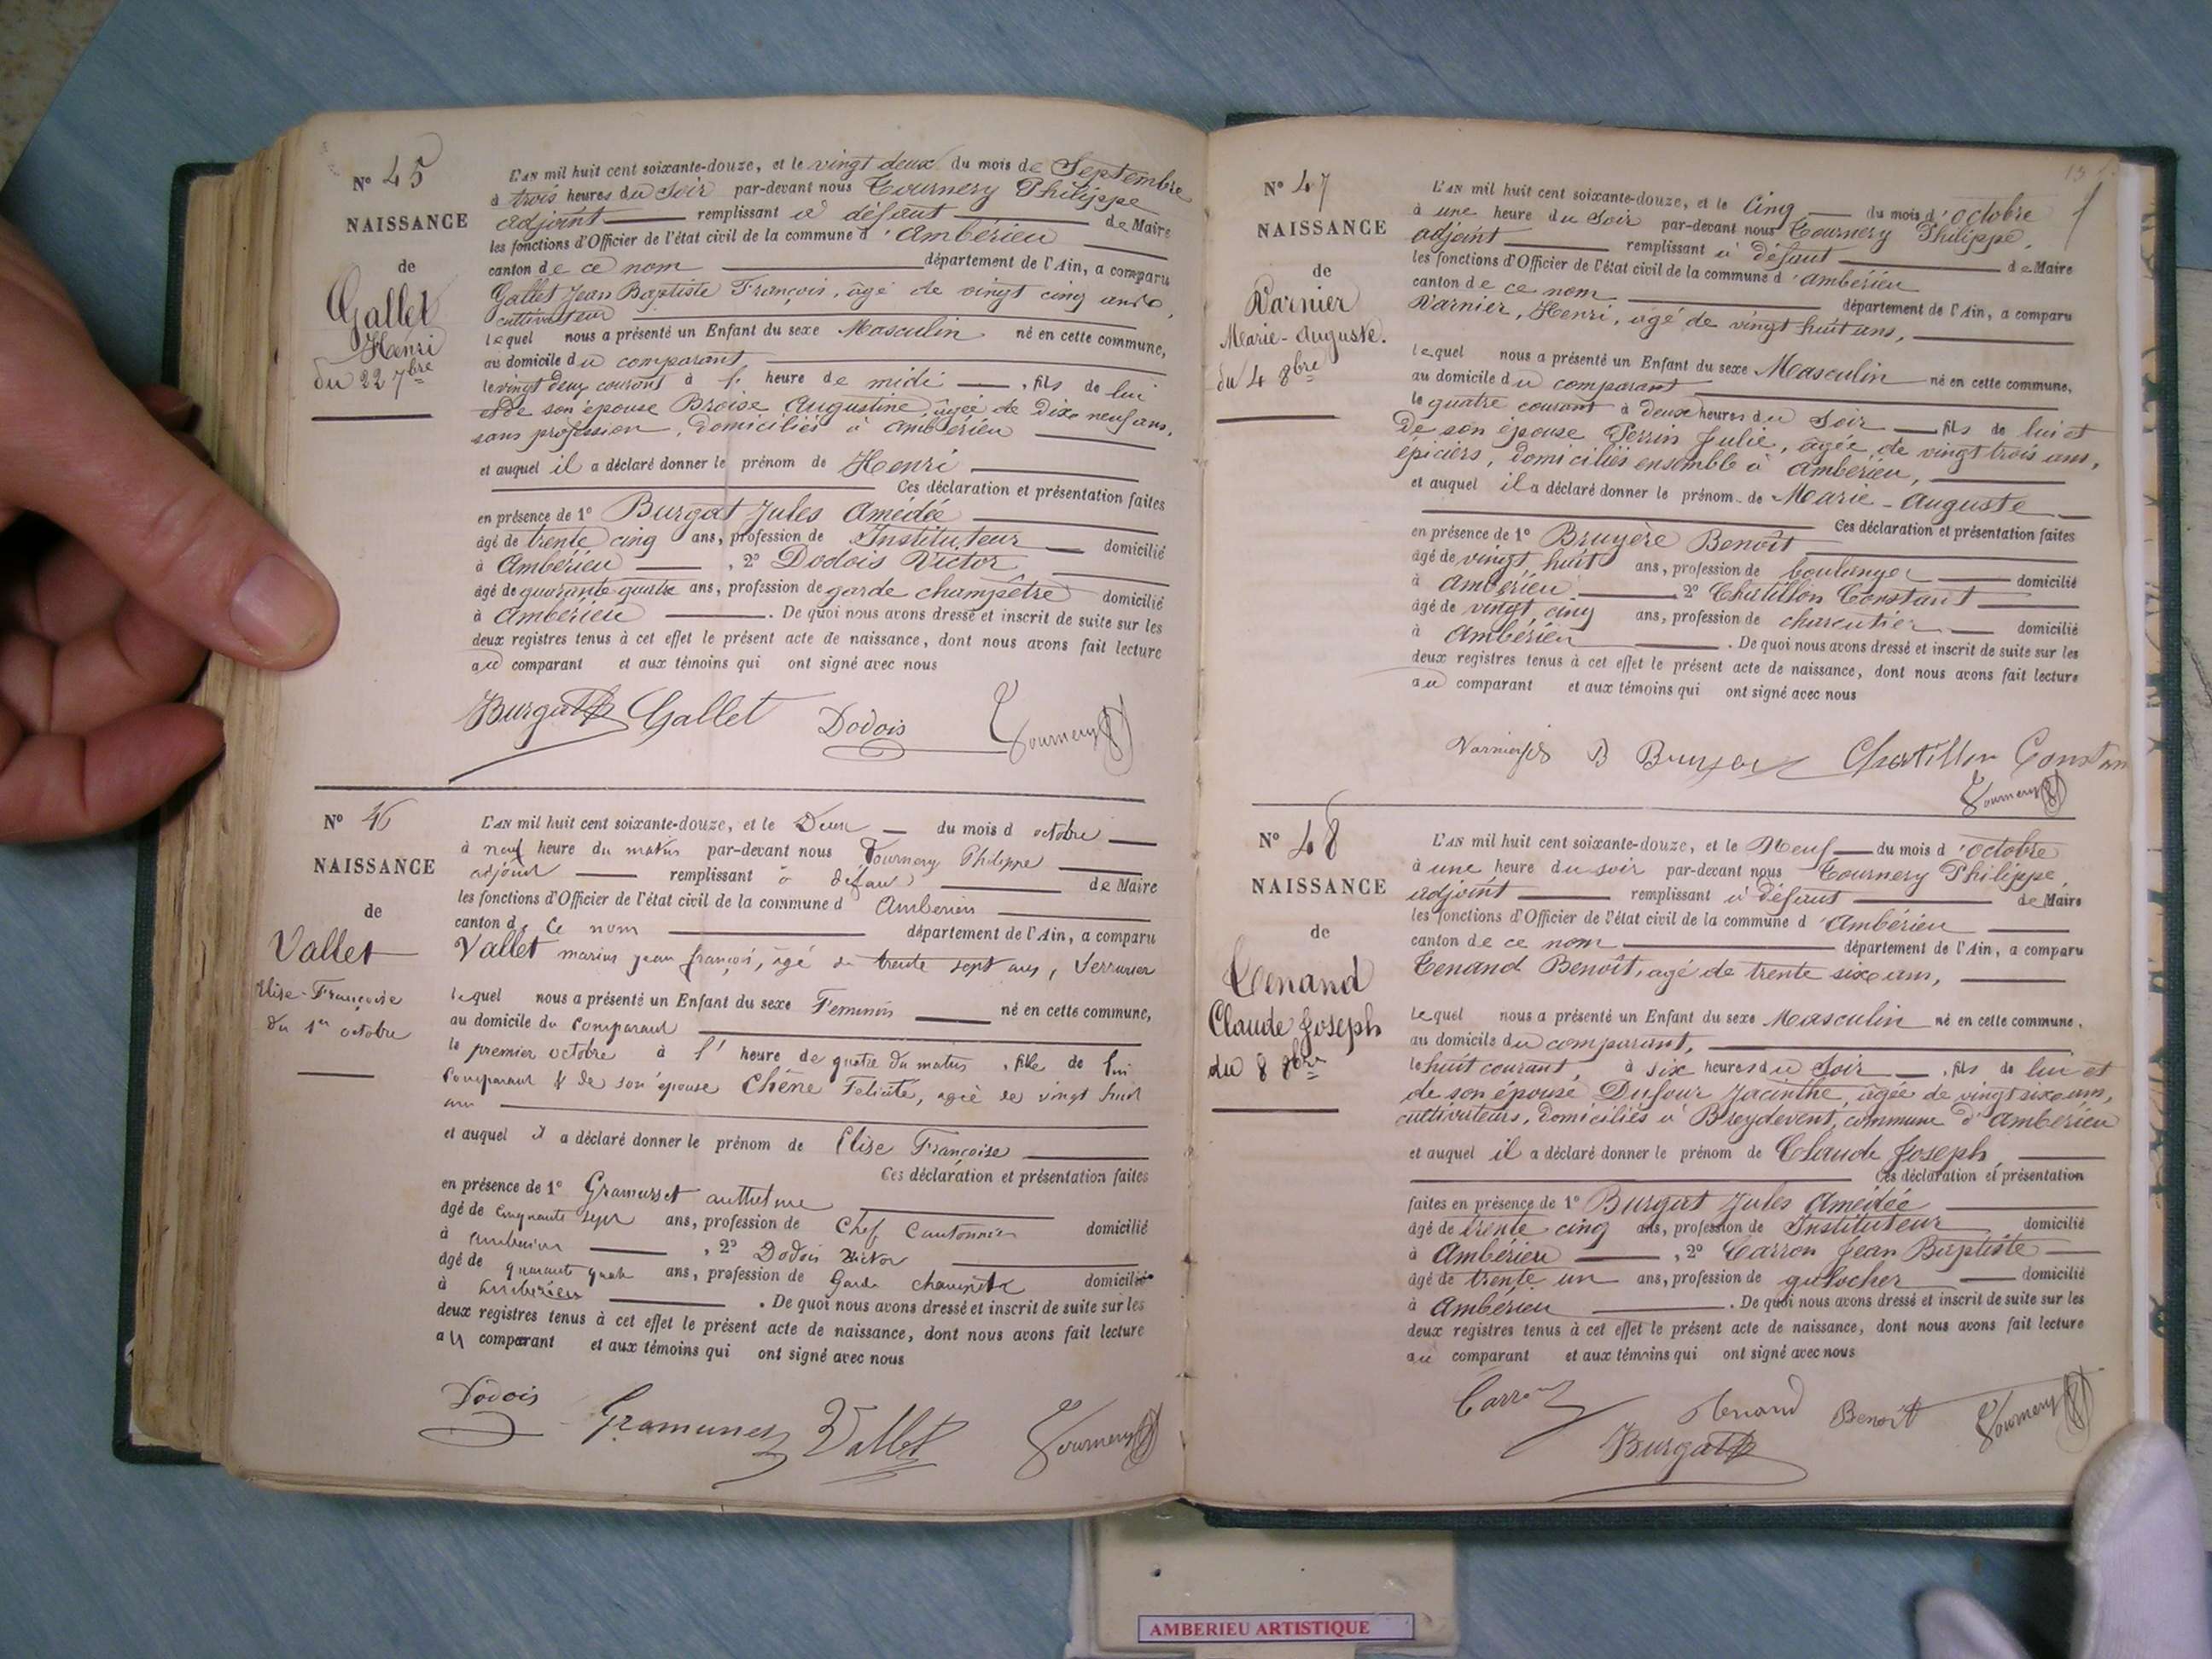 N° 45
NAISSANCE
de
Gallet
Henri
du 22 7bre
L'AN mil huit cent soixante-douze, et le vingt deux du mois de Septembre
à trois heures du Soir par-devant nous Tournery Philippe
adjoint remplissant à défaut de Maire
les fonctions d'Officier de l'état civil de la commune d'Ambérieu
canton de ce nom département de l'Ain, a comparu
Gallet Jean Baptiste François, âgé de vingt cinq ans,
cultivateur
lequel nous a présenté un Enfant du sexe Masculin né en cette commune,
au domicile du comparant
le vingt deux courant à l' heure de midi, fils de lui
et de son épouse Broise Augustine, âgée de Dix neuf ans,
sans profession, domiciliés à Ambérieu
et auquel il a déclaré donner le prénom de Henri
Ces déclaration et présentation faites
en présence de 1° Burgat Jules Amédée
âgé de trente cinq ans, profession de Instituteur domicilié
à Ambérieu, 2° Dodois Victor
âgé de quarante quatre ans, profession de garde champêtre domicilié
à Ambérieu. De quoi nous avons dressé et inscrit de suite sur les
deux registres tenus à cet effet le présent acte de naissance, dont nous avons fait lecture
au comparant et aux témoins qui ont signé avec nous
Burgat Gallet Dodois Tournery
N° 46
NAISSANCE
de
Vallet
Elise-Françoise
du 1er octobre
L'AN mil huit cent soixante-douze, et le Deux du mois d octobre
à neuf heure du matin par-devant nous Tournery Philippe
adjoint remplissant à défaut de Maire
les fonctions d'Officier de l'état civil de la commune d Ambérieu
canton de ce nom département de l'Ain, a comparu
Vallet marius jean françois, âgé de trente sept ans, Serrurier
lequel nous a présenté un Enfant du sexe Feminin né en cette commune,
au domicile du Comparant
le premier octobre à l' heure de quatre du matin, fille de lui
Comparant & de son épouse Chêne Felicité, agée de vingt huit
ans
et auquel il a déclaré donner le prénom de Elise Françoise
Ces déclaration et présentation faites
en présence de 1° Gramusset
âgé de cinquante sept ans, profession de Chef Cantonnier domicilié
à ambérieu, 2° Dodois Victor
âgé de quarante quatre ans, profession de Garde champêtre domicilié
à ambérieu. De quoi nous avons dressé et inscrit de suite sur les
deux registres tenus à cet effet le présent acte de naissance, dont nous avons fait lecture
au comparant et aux témoins qui ont signé avec nous
Dodois Vallet Tournery
N° 47
NAISSANCE
de
Varnier
Marie-Auguste.
du 4 8bre
L'AN mil huit cent soixante-douze, et le Cinq du mois d'octobre
à une heure du Soir par-devant nous Tournery Philippe,
adjoint remplissant à défaut de Maire
les fonctions d'Officier de l'état civil de la commune d'Ambérieu
canton de ce nom département de l'Ain, a comparu
Varnier, Henri, âgé de vingt huit ans,
lequel nous a présenté un Enfant du sexe Masculin né en cette commune,
au domicile du comparant
le quatre courant à deux heures du Soir fils de lui et
de son épouse Perrin Julie, âgée de vingt trois ans,
épiciers, domiciliés ensemble à Ambérieu,
et auquel il a déclaré donner le prénom de Marie-Auguste
Ces déclaration et présentation faites
en présence de 1° Bruyère Benoît
âgé de vingt huit ans, profession de boulanger domicilié
à Ambérieu. 2° Châtillon Constant
âgé de vingt cinq ans, profession de charcutier domicilié
à Ambérieu. De quoi nous avons dressé et inscrit de suite sur les
deux registres tenus à cet effet le présent acte de naissance, dont nous avons fait lecture
au comparant et aux témoins qui ont signé avec nous
B Bruyer Chatillon Constan
Tournery
N° 48
NAISSANCE
de
Tenand
Claude Joseph
du 8 8bre
L'AN mil huit cent soixante-douze, et le Neuf du mois d'octobre
à une heure du soir par-devant nous Tournery Philippe,
adjoint remplissant à défaut de Maire
les fonctions d'Officier de l'état civil de la commune d'Ambérieu
canton de ce nom département de l'Ain, a comparu
Tenand Benoît, agé de trente six ans,
lequel nous a présenté un Enfant du sexe Masculin né en cette commune,
au domicile du comparant,
le huit courant, à six heures du Soir, fils de lui et
de son épouse Dufour Jacinthe, âgée de vingt six ans,
cultivateurs, domiciliés à Breydevent, commune d'Ambérieu
et auquel il a déclaré donner le prénom de Claude Joseph
Ces déclaration et présentation
faites en présence de 1° Burgat Jules Amédée
âgé de trente cinq ans, profession de Instituteur domicilié
à Ambérieu, 2° Carron Jean Baptiste
âgé de trente un ans, profession de domicilié
à Ambérieu. De quoi nous avons dressé et inscrit de suite sur les
deux registres tenus à cet effet le présent acte de naissance, dont nous avons fait lecture
au comparant et aux témoins qui ont signé avec nous
Carron Tenand Benoit Tournery
Burgat
AMBERIEU ARTISTIQUE